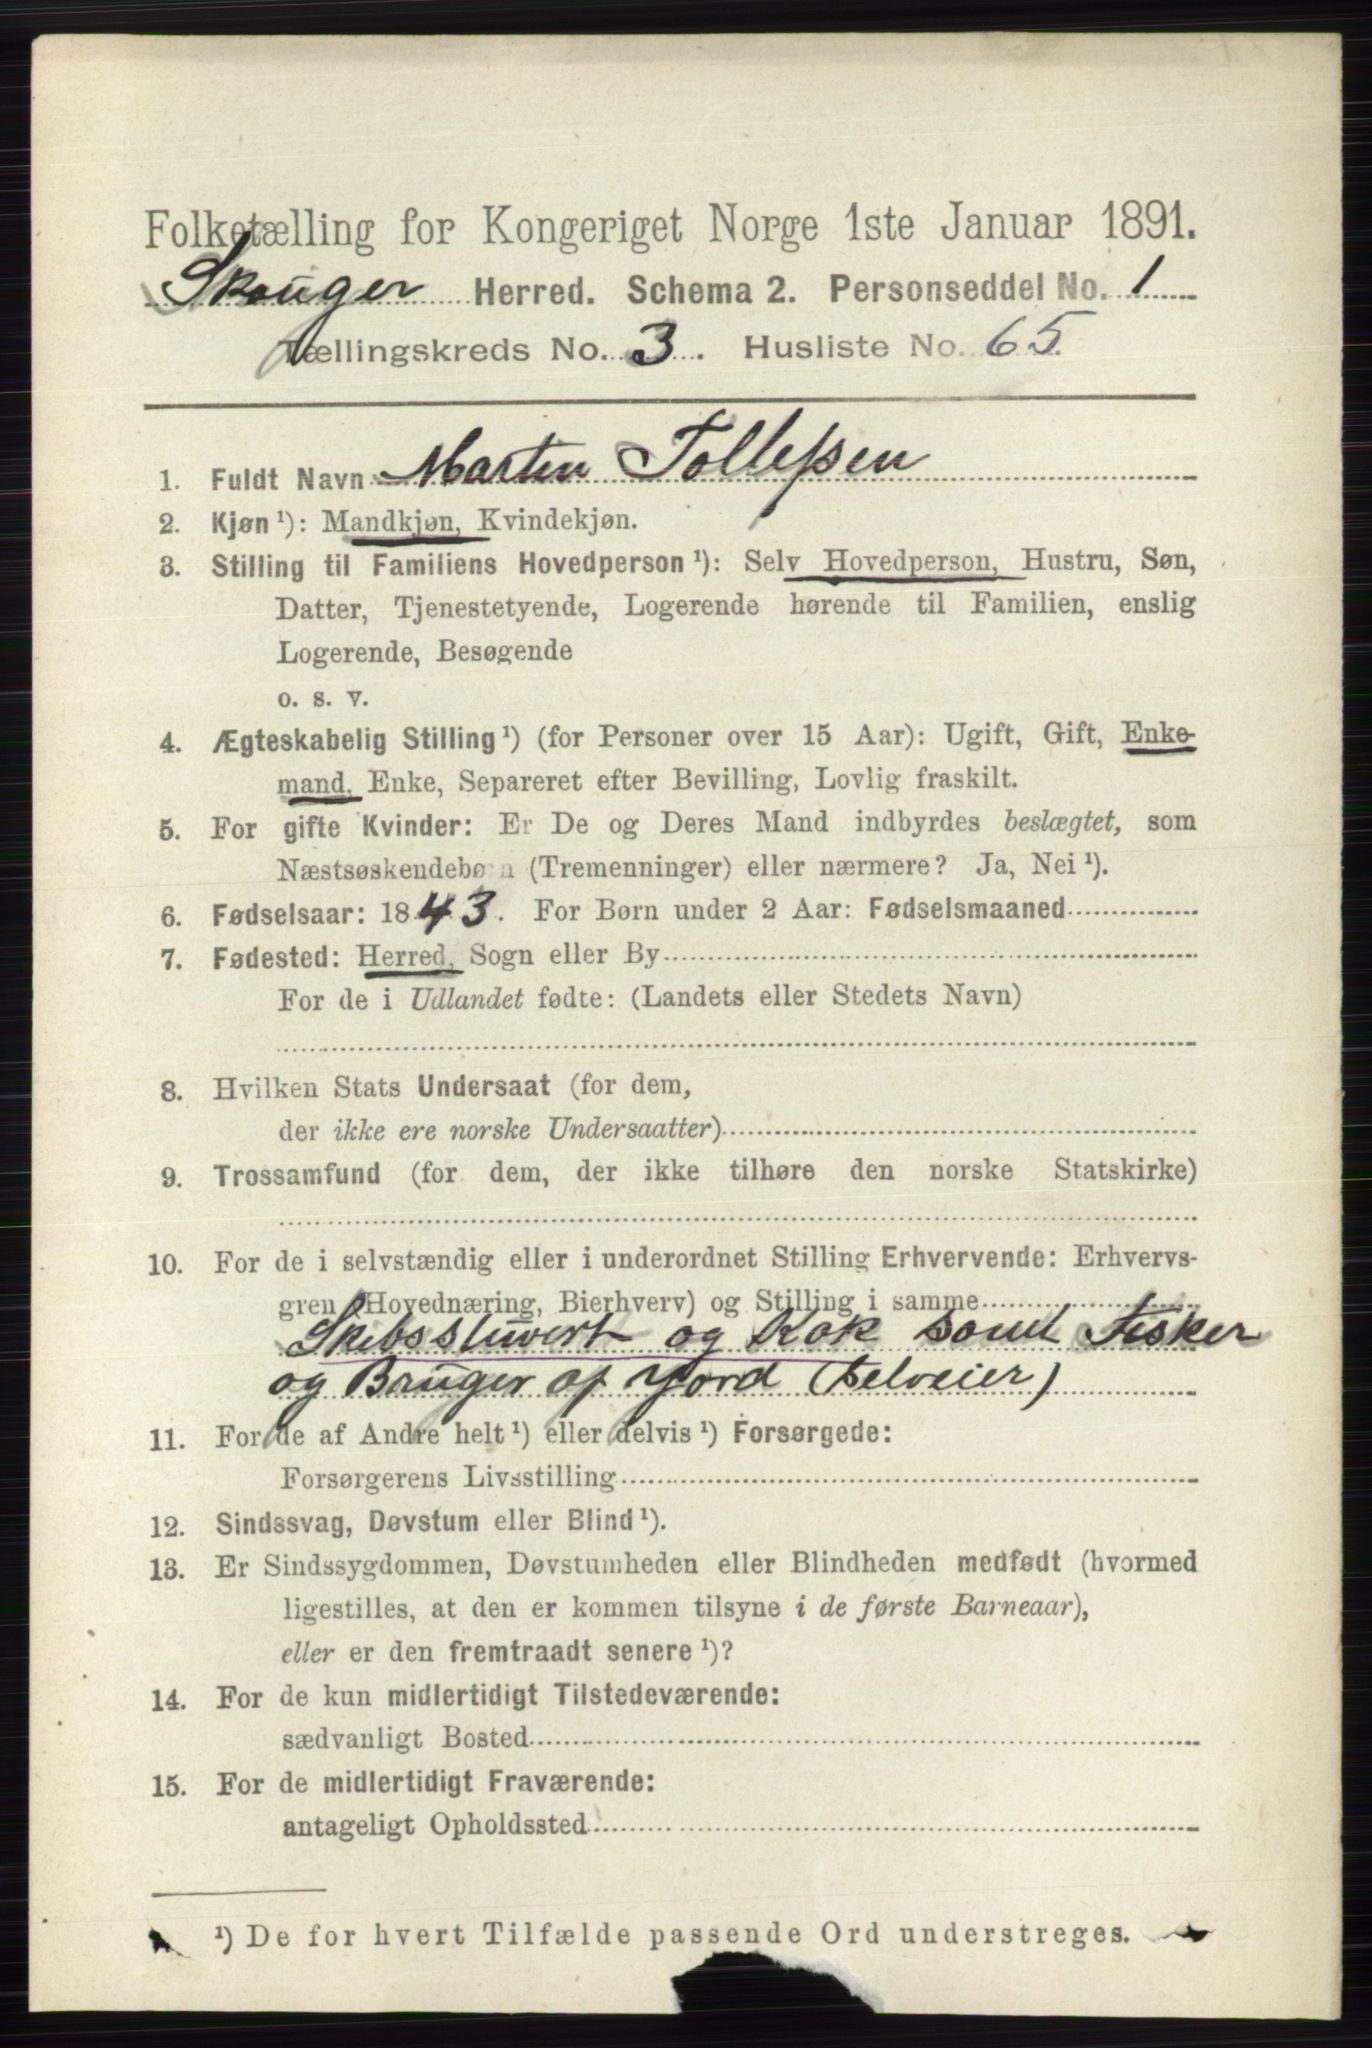 Folketælling for Kongeriget Norge 1ste Januar 1891.
Skouger Herred. Schema 2. Personseddel No. 1
Tællingskreds No. 3. Husliste No. 65.
1. Fuldt Navn Marten Tollefsen
2. Kjøn ¹): Mandkjøn, Kvindekjøn.
3. Stilling til Familiens Hovedperson ¹): Selv Hovedperson, Hustru, Søn,
Datter, Tjenestetyende, Logerende hørende til Familien, enslig
Logerende, Besøgende
o. s. v.
4. Ægteskabelig Stilling ¹) (for Personer over 15 Aar): Ugift, Gift, Enke-
mand, Enke, Separeret efter Bevilling, Lovlig fraskilt.
5. For gifte Kvinder: Er De og Deres Mand indbyrdes beslægtet, som
Næstsøskendebørn (Tremenninger) eller nærmere? Ja, Nei ¹).
6. Fødselsaar: 1843. For Børn under 2 Aar: Fødselsmaaned
7. Fødested: Herred, Sogn eller By
For de i Udlandet fødte: (Landets eller Stedets Navn)
8. Hvilken Stats Undersaat (for dem,
der ikke ere norske Undersaatter)
9. Trossamfund (for dem, der ikke tilhøre den norske Statskirke)
10. For de i selvstændig eller i underordnet Stilling Erhvervende: Erhvervs-
gren (Hovednæring, Bierhverv) og Stilling i samme
Skibsstuvert og Kok samt Fisker
og Bruger af Jord (selveier)
11. For de af Andre helt ¹) eller delvis ¹) Forsørgede:
Forsørgerens Livsstilling
12. Sindssvag, Døvstum eller Blind ¹).
13. Er Sindssygdommen, Døvstumheden eller Blindheden medfødt (hvormed
ligestilles, at den er kommen tilsyne i de første Barneaar),
eller er den fremtraadt senere ¹)?
14. For de kun midlertidigt Tilstedeværende:
sædvanligt Bosted
15. For de midlertidigt Fraværende:
antageligt Opholdssted
¹) De for hvert Tilfælde passende Ord understreges.